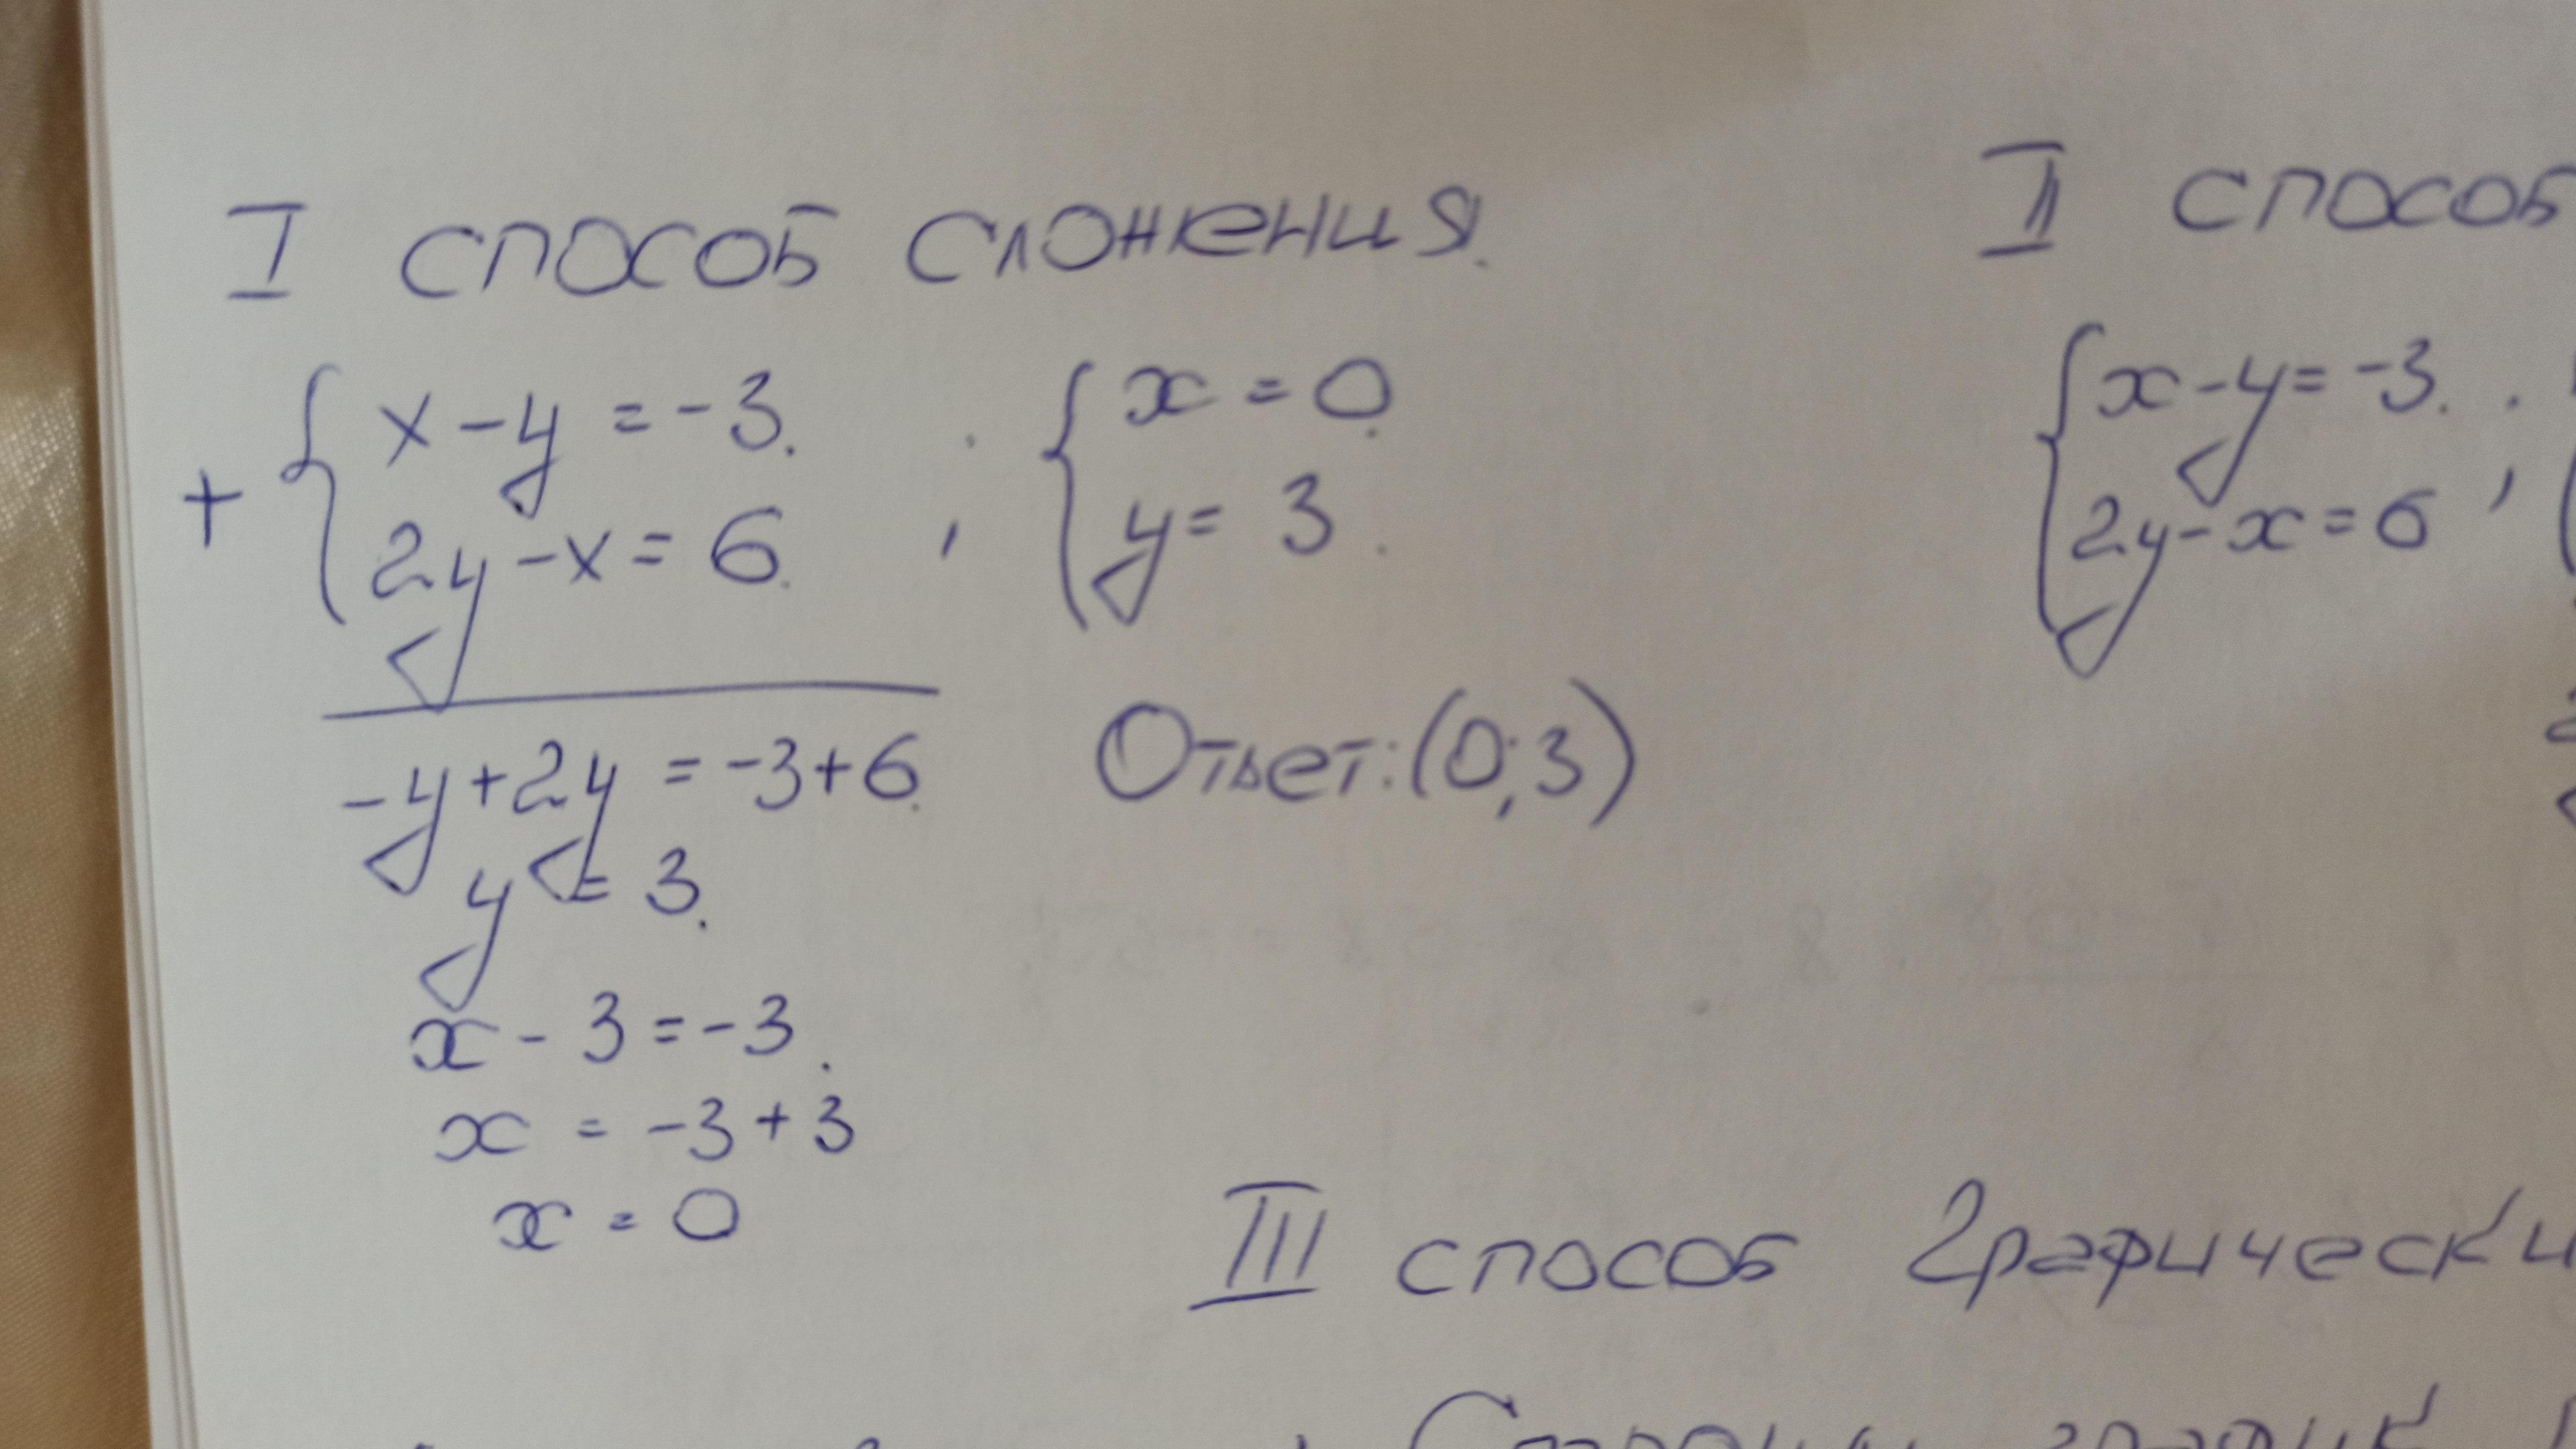 I способ сложения.
+ { x - y = -3.
2y - x = 6.
; { x = 0.
y = 3.
-y + 2y = -3 + 6.
y = 3.
x - 3 = -3.
x = -3 + 3
x = 0
Ответ: (0; 3)
II способ
{ x - y = -3.
2y - x = 6 ;
III способ Графически